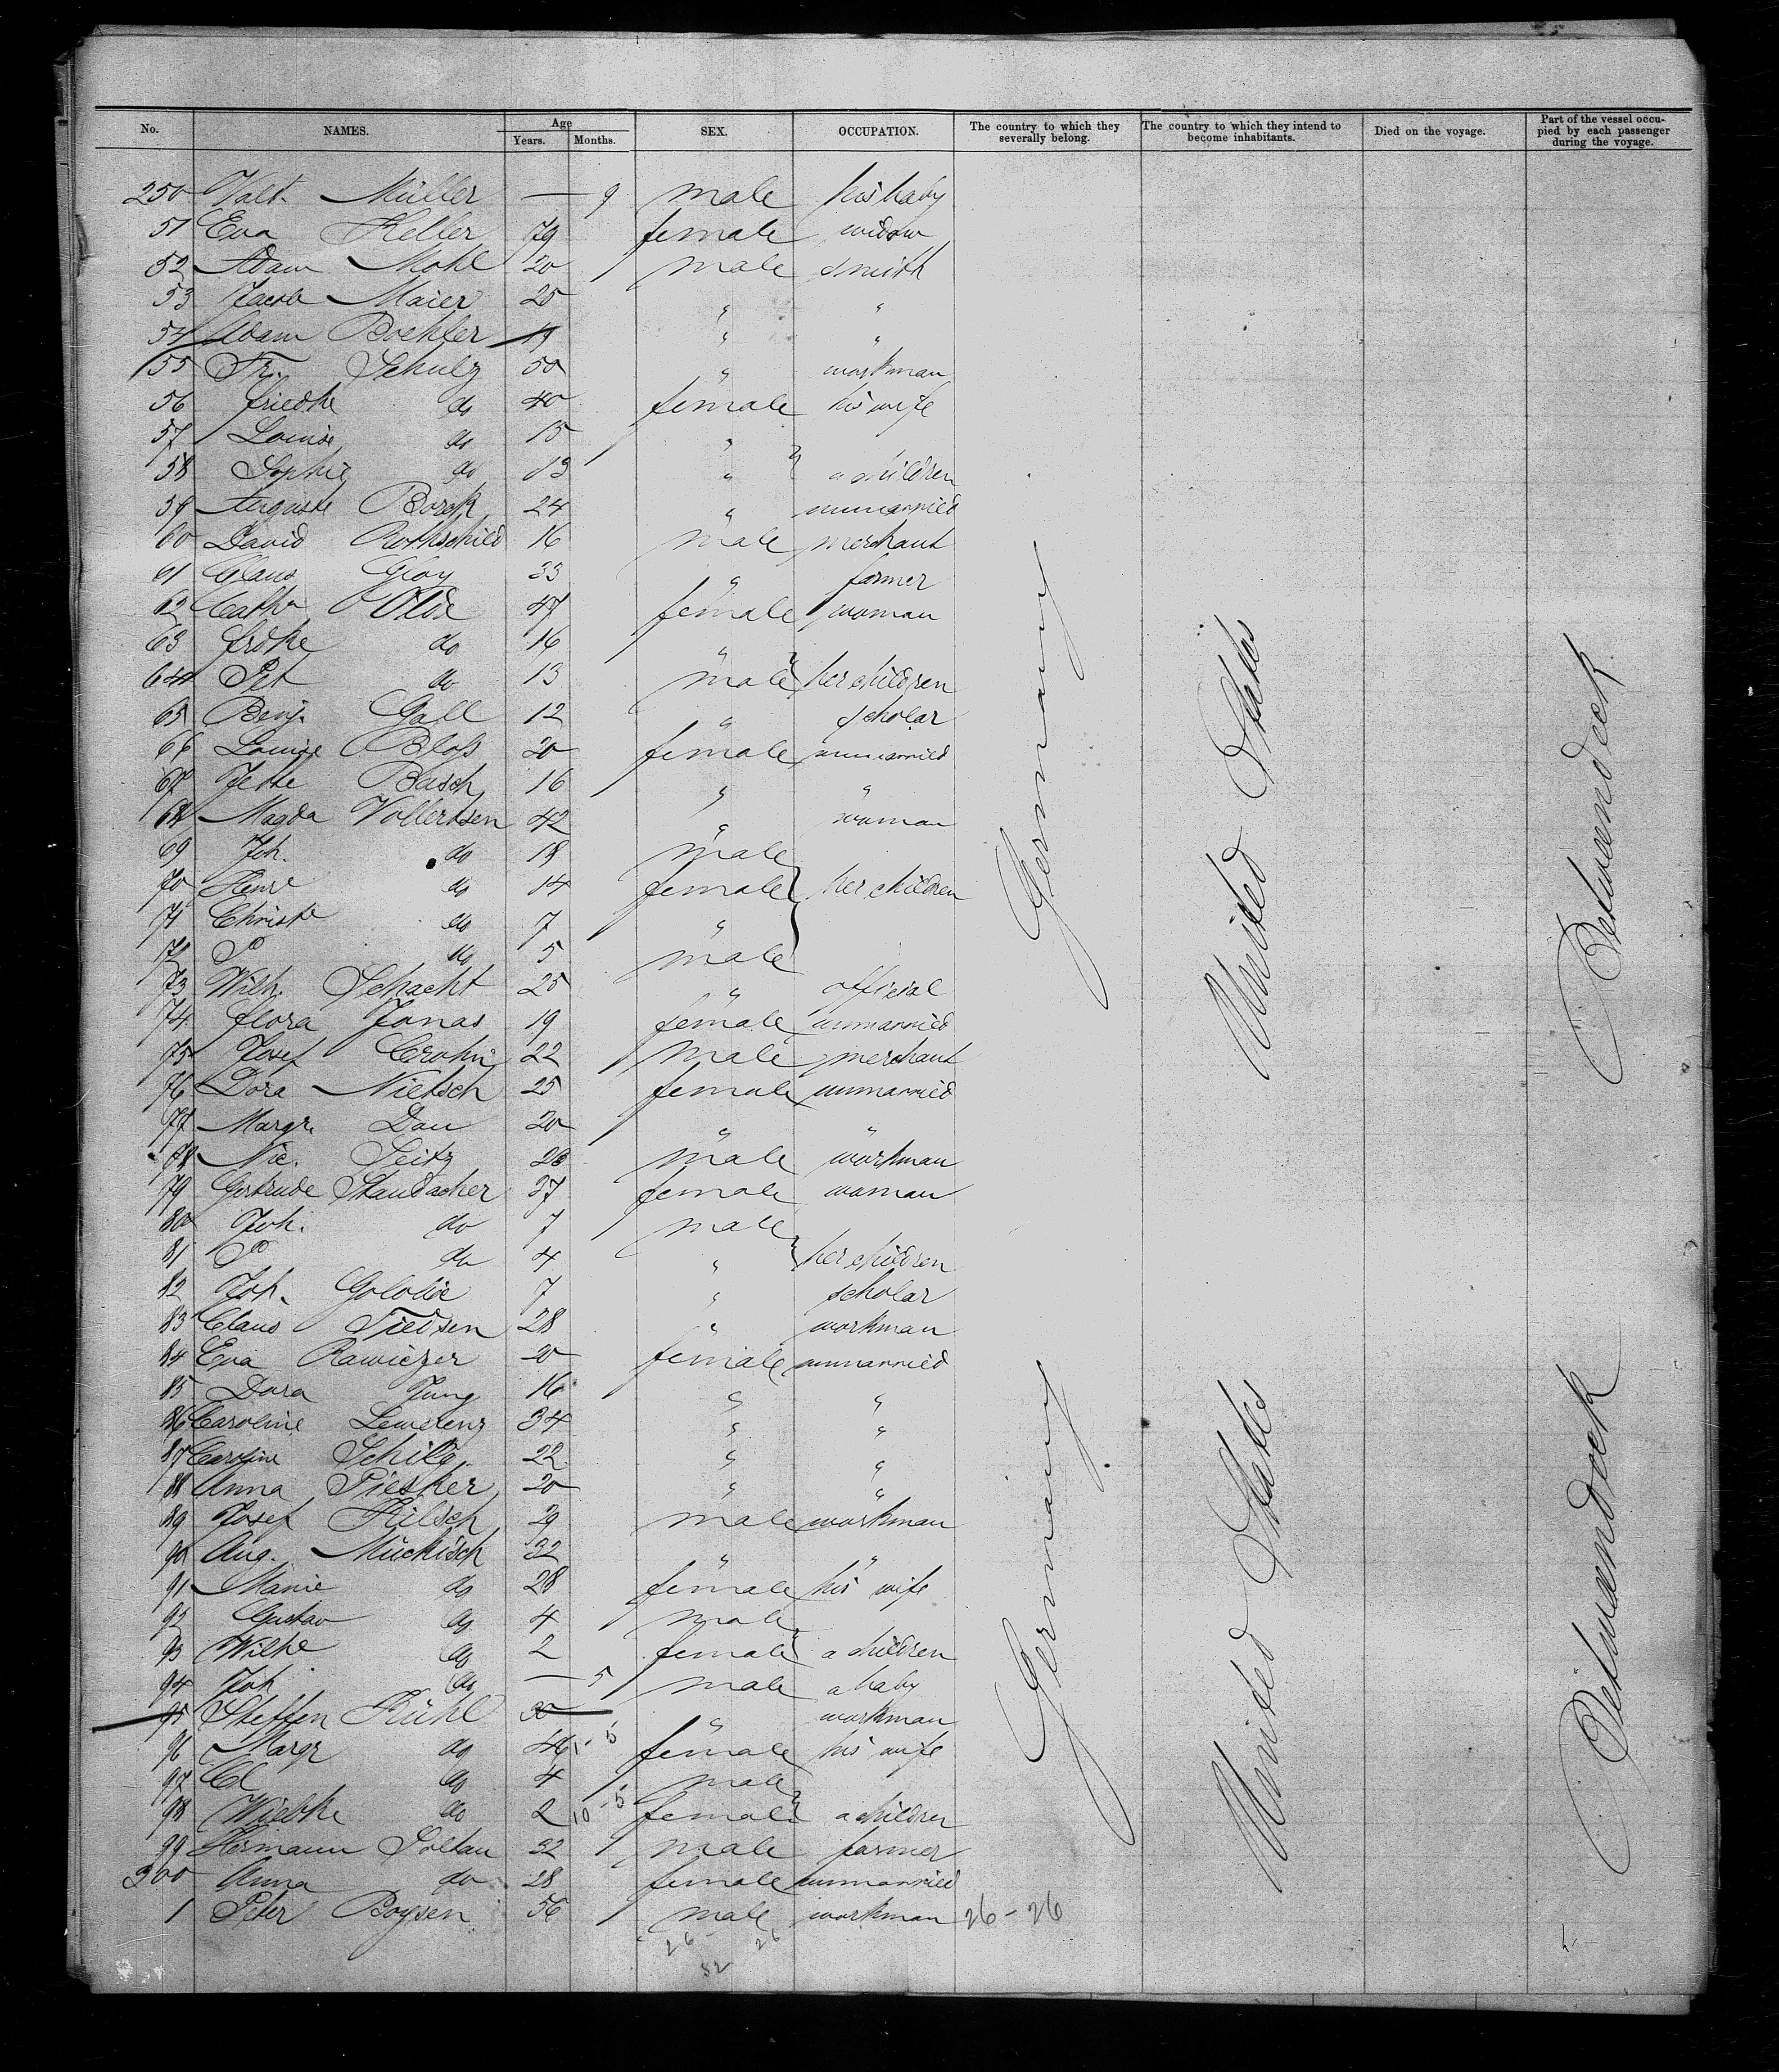 No. NAMES. Age Years. Months. SEX. OCCUPATION. The country to which they severally belong. The country to which they intend to become inhabitants. Died on the voyage. Part of the vessel occupied by each passenger during the voyage.
250 Valt. Müller — 9 male his baby
51 Eva Keller 79 female widow
52 Adam Mohl 20 male smith
53 Jacob Maier 25 " "
54 Adam Boehler 19 " "
55 Fr. Schulz 50 " workman
56 Friedke do 40 female his wife
57 Louise do 15 "
58 Sophie do 13 " a children
59 Auguste Borck 24 " unmarried
60 David Rothschild 16 male merchant
61 Claus Groy 33 " farmer
62 Cathe 47 female woman
63 Frdke do 16 "
64 Pet do 13 male her children
65 Benj. Gall 12 " scholar
66 Louise Bloß 20 female unmarried
67 Jette Basch 16 " "
68 Magda Vollertsen 42 " woman
69 Joh. do 18 male
70 Henr do 14 female her children
71 Christe do 7 "
72 P do 5 male
73 Wilh. Schacht 25 " official
74 Flora Jonas 19 female unmarried
75 Josef Crohn 22 male merchant
76 Dora Nietsch 25 female unmarried
77 Margr. Dau 20 " "
78 Nic. Seitz 26 male workman
79 Gertrude Staudacher 37 female woman
80 Joh. do 7 male
81 P do 4 " her children
82 Joh. 7 " scholar
83 Claus Tiedsen 28 " workman
84 Eva Rawiczer 20 female unmarried
85 Dora Jung 16 " "
86 Caroline Lewerenz 34 " "
87 Caroline Schild 22 " "
88 Anna Piesker 20 " "
89 Josef Hilsch 29 male workman
90 Aug. Muckisch 32 " "
91 Marie do 28 female his wife
92 Gustav do 4 male
93 Wilhe do 2 female a children
94 Joh do — 5 male a baby
95 Steffen Kühl 30 " workman
96 Margr do 46 female his wife
97 Cl do 4 male
98 Wiebke do 2 10-5 female a children
99 Hermann Soltau 32 male farmer
300 Anna do 28 female unmarried
1 Peter Boysen 56 male workman 26-26
26 26
52
Germany
United States
Betweendeck
Germany
United States
Betweendeck